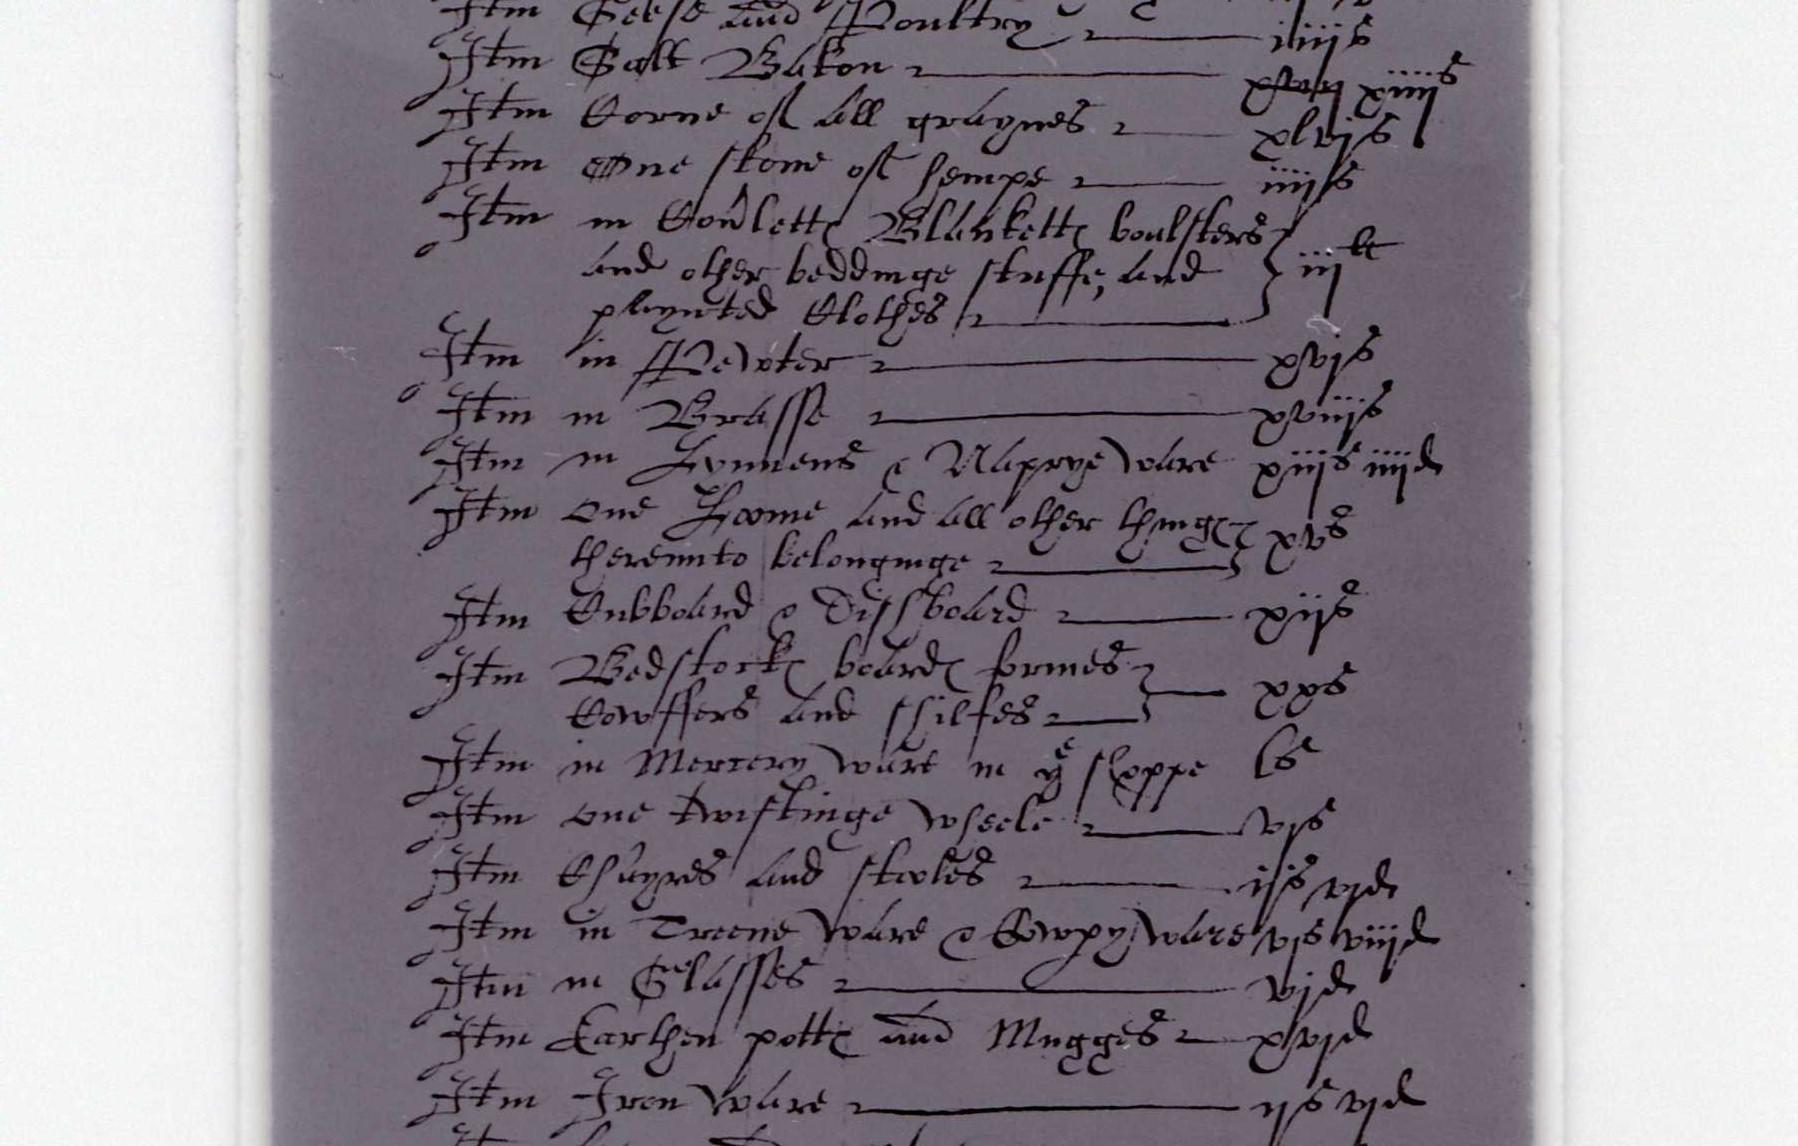 Itm Geese and Poultry iiijs
Itm Salt Bakon xiiijs
Itm Corne of all graynes xlvjs
Itm One stone of hempe iiijs
Itm in Cov̑lettes Blankettes boulsters
and other beddinge stuffe, and iijli
paynted Clothes
Itm in Pewter xvjs
Itm in Brasse xviijs
Itm in Lynnens & Naprye ware xiijs iiijd
Itm one Loome and all other thinges xvs
thereunto belonginge
Itm Cubboard & Dishboard xijs
Itm Bedstockes boardes formes
Cowffers and shilfes xxs
Itm in Mercery ware in ye shoppe ls
Itm one twistinge wheele vjs
Itm Chayres and stooles ijs vjd
Itm in Treene ware & Cowpy ware vjs viijd
Itm in Glasses vjd
Itm Earthen pottes and Mugges xvjd
Itm Iron ware ijs vjd